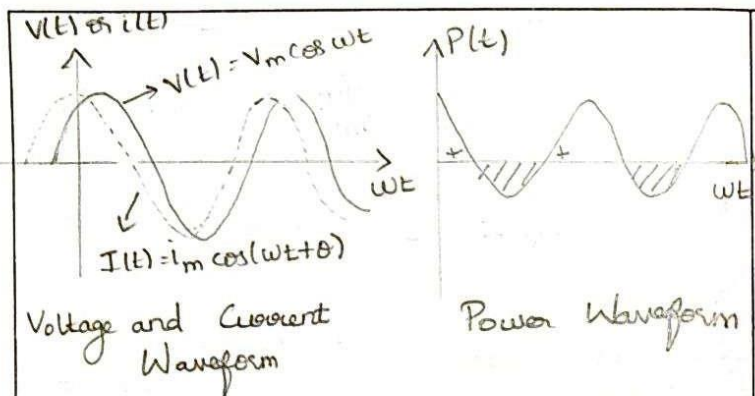 V(t) or i(t)
V(t) = Vm cos ωt
ωt
I(t) = im cos(ωt+θ)
Voltage and Current
Waveform
P(t)
+ +
ωt
Power Waveform